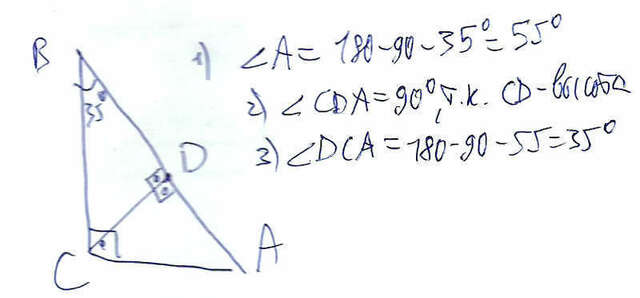 B
35°
D
C
A
1) ∠A = 180-90-35° = 55°
2) ∠CDA = 90°, т.к. CD - высота
3) ∠DCA = 180-90-55 = 35°